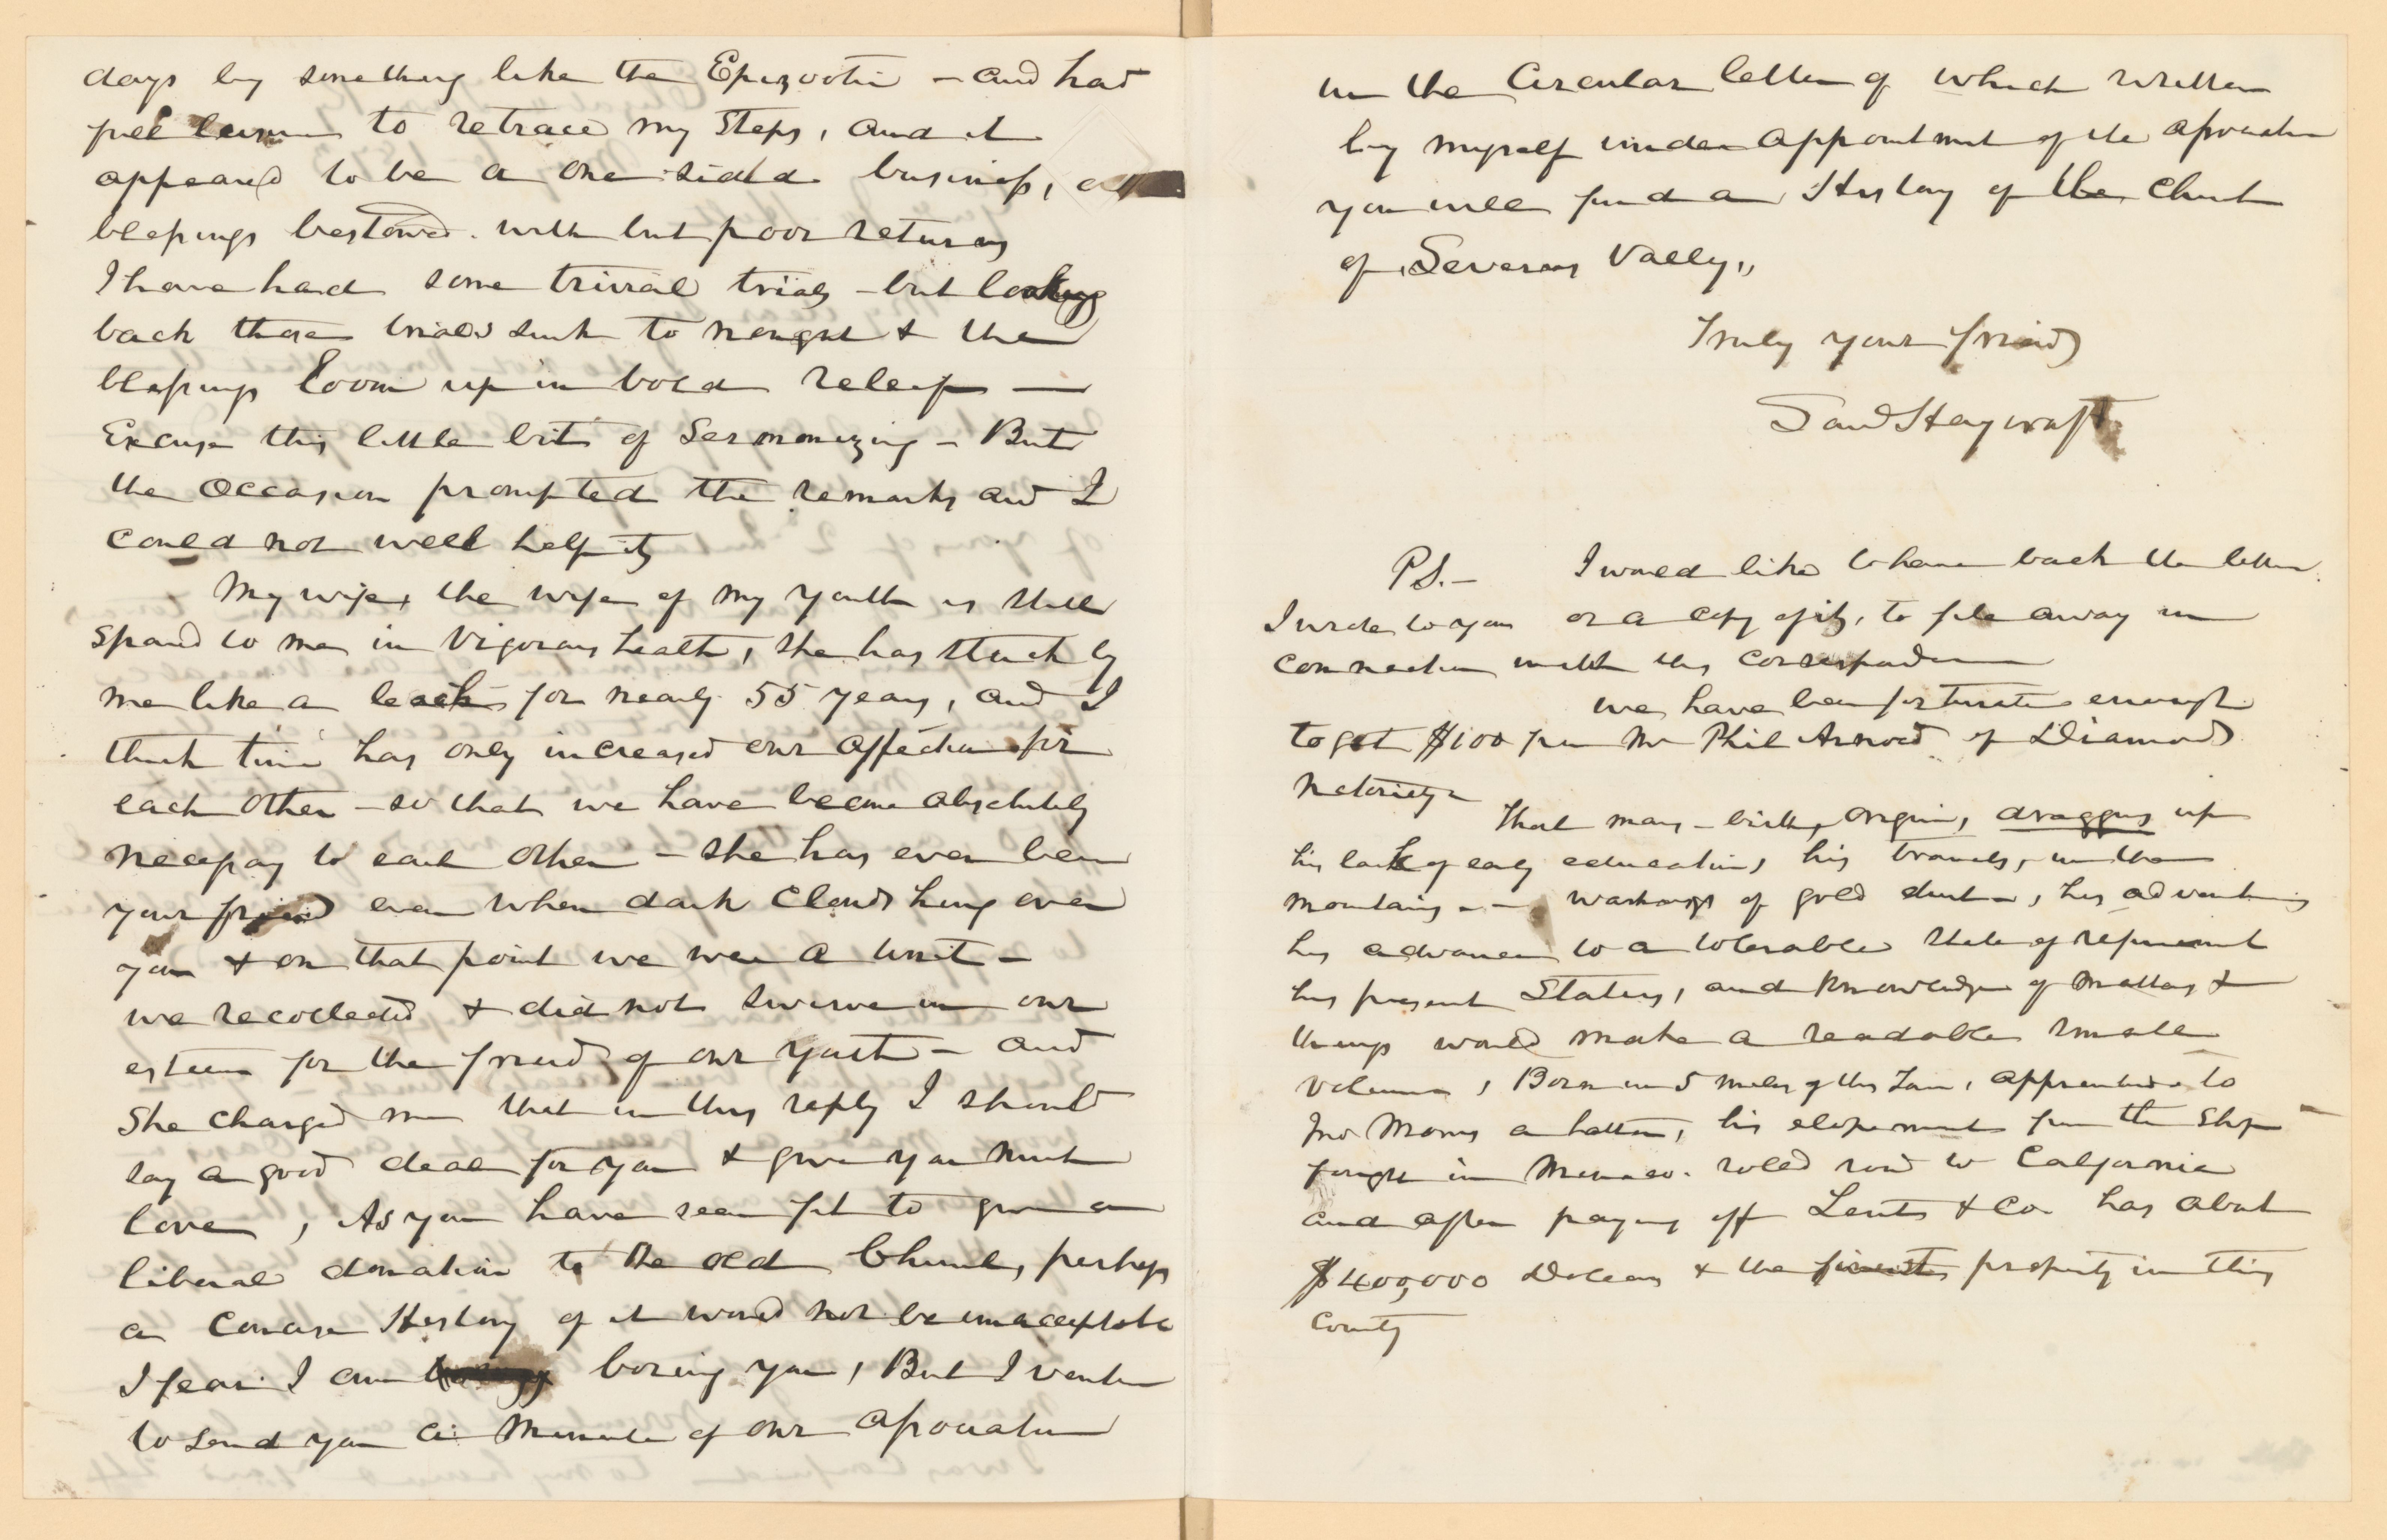 days by something like the Epizootic — and had
full leisure to retrace my steps, and it
appeared to be a one sided business, all
blessings bestowed. with but poor returns
I have had some trivial trials – but looking
back those trials sink to nought & the
blessings loom up in bold releif —
Excuse this little bit of Sermonizing – But
the occasion prompted the remarks and I
could not well help it
My wife, the wife of my youth is still
spared to me in vigorous health, she has stuck by
me like a leech for nearly 55 years, and I
think time has only increased our affection for
each other – so that we have become absolutely
necessary to each other – she has ever been
your friend even when dark clouds hung over
you & on that point we were a unit –
we recollected & did not swerve in our
esteem for the friend of our youth – and
She charged me that in this reply I should
say a good deal for you & give you much
love, As you have seen fit to give a
liberal donation to the old Church, perhaps
a concise History of it would not be unacceptable
I fear I am boring you, But I venture
to send you a Minute of our Association
in the Circular letter of which written
by myself under appointment of the Association
you will find a History of the Church
of Severns Valley,,
Truly your friend
Saml Haycraft
P.S. — I would like to have back the letter
I wrote to you or a copy of it, to file away in
connection with this correspondence
we have been fortunate enough
to get $100 from Mr Phil Arnold of Diamond
Notoriety
That mans – birth, origin, dragging up
his lack of early education, his travels, in the
mountains – – washings of gold dust –, his adventures
his advance to a tolerable state of refinement
his present Status, and knowledge of matters &
things would make a readable small
volume, Born in 5 miles of this Town, apprentice to
Jno Morris a hatter, his elopement from the Shop
fought in Mexico. roled round to California
and after paying off Lents & Co has about
$400,000 Dollars & the finest property in this
County